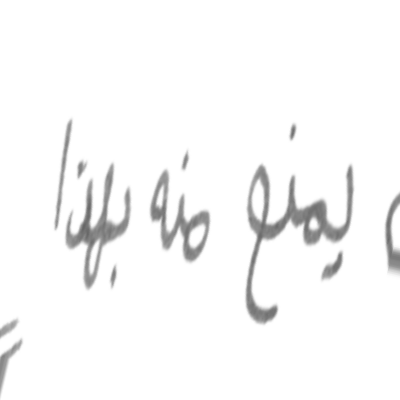 يمنع منه بهذا